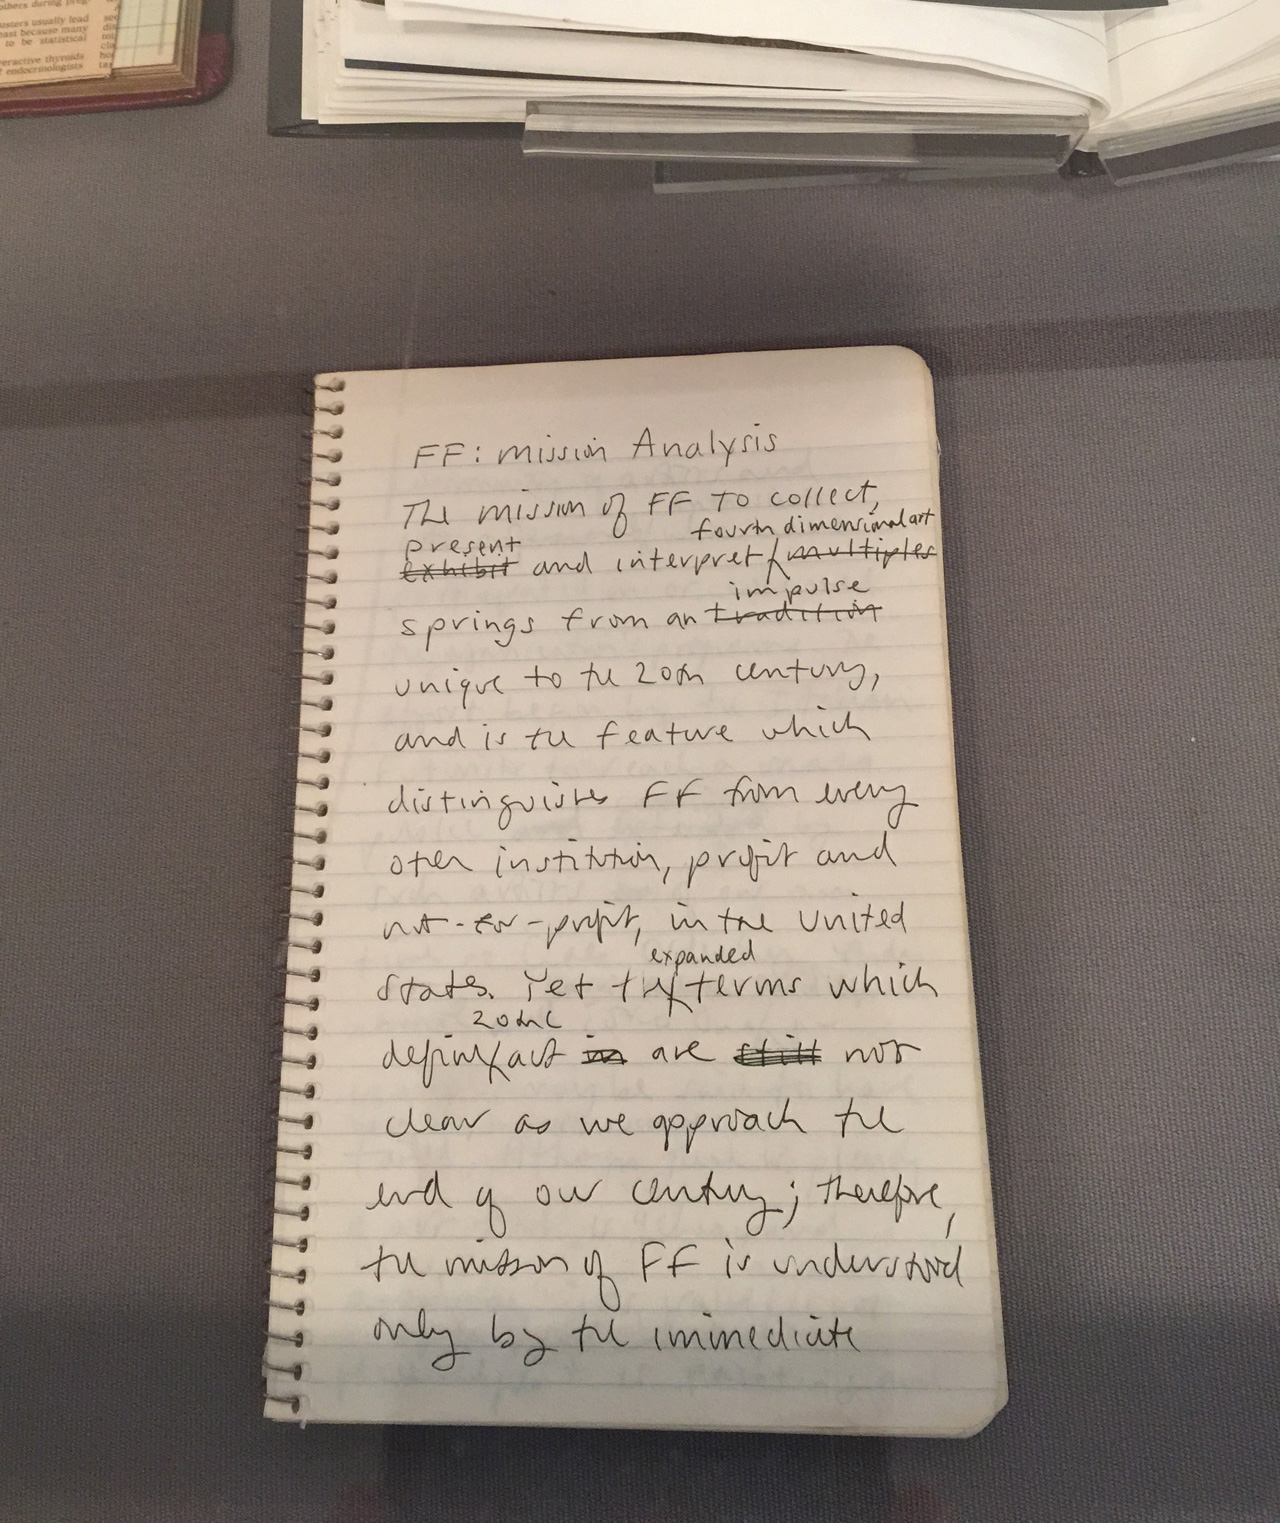 others during preg-
usters usually lead
east because many
to be statistical
eractive thyroids
endocrinologists
FF: mission Analysis
The mission of FF to collect,
present fourth dimensional art
exhibit and interpret multiples
impulse
springs from an tradition
unique to the 20th century,
and is the feature which
distinguishes FF from every
other institution, profit and
not-for-profit, in the United
States. Yet the terms which
expanded
20th C
define art in are still not
clear as we approach the
end of our century; therefore,
the mission of FF is understood
only by the immediate